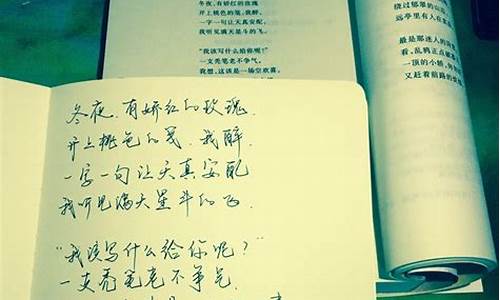 冬夜，有娇红的玫瑰
开上桃色的笺，我醉，
一字一句让天真安配，
我听见满天星斗的飞。
"我该写什么给你呢？"
一支秃笔老不争气。
我想，这该是一场空欢喜，
绕过郁翠的山
远亭里有人在
最是那迷人的
看，乱鸦正点破
一顶的小轿，
又赶着前路的
冬夜，有娇红的玫瑰，
开上桃色的笺，我醉，
一字一句让天真安配
我听见满天星斗的飞
"我该写什么给你呢？"
一支秃笔老不争气